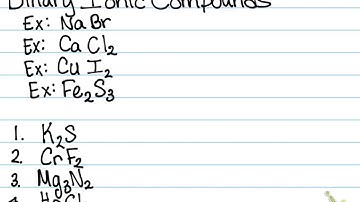 Binary Ionic Compounds
Ex: NaBr
Ex: CaCl₂
Ex: CuI₂
Ex: Fe₂S₃
1. K₂S
2. CrF₂
3. Mg₃N₂